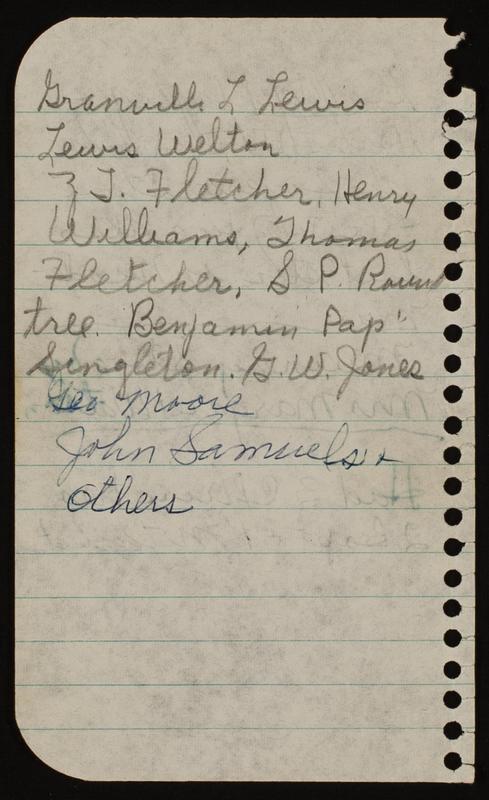 Granville L Lewis
Lewis Welton
Z T. Fletcher, Henry
Williams, Thomas
Fletcher, S P. Round
tree. Benjamin Pap'
Singleton. G. W. Jones
Geo Moore
John Samuels &
others